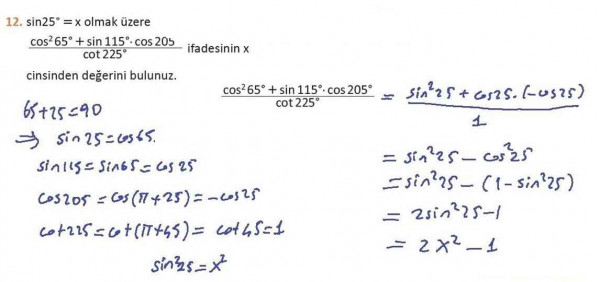 12. sin25° = x olmak üzere
cos²65° + sin 115°· cos 205 / cot 225° ifadesinin x
cinsinden değerini bulunuz.
cos²65° + sin 115°· cos 205° / cot 225° = sin²25 + cos25.(-cos25) / 1
65+25=90
⇒ sin25=cos65.
sin115=sin65=cos25
cos205=cos(π+25)=-cos25
cot225=cot(π+45)= cot45=1
sin²25=x²
= sin²25 - cos²25
= sin²25 - (1-sin²25)
= 2sin²25-1
= 2x²-1